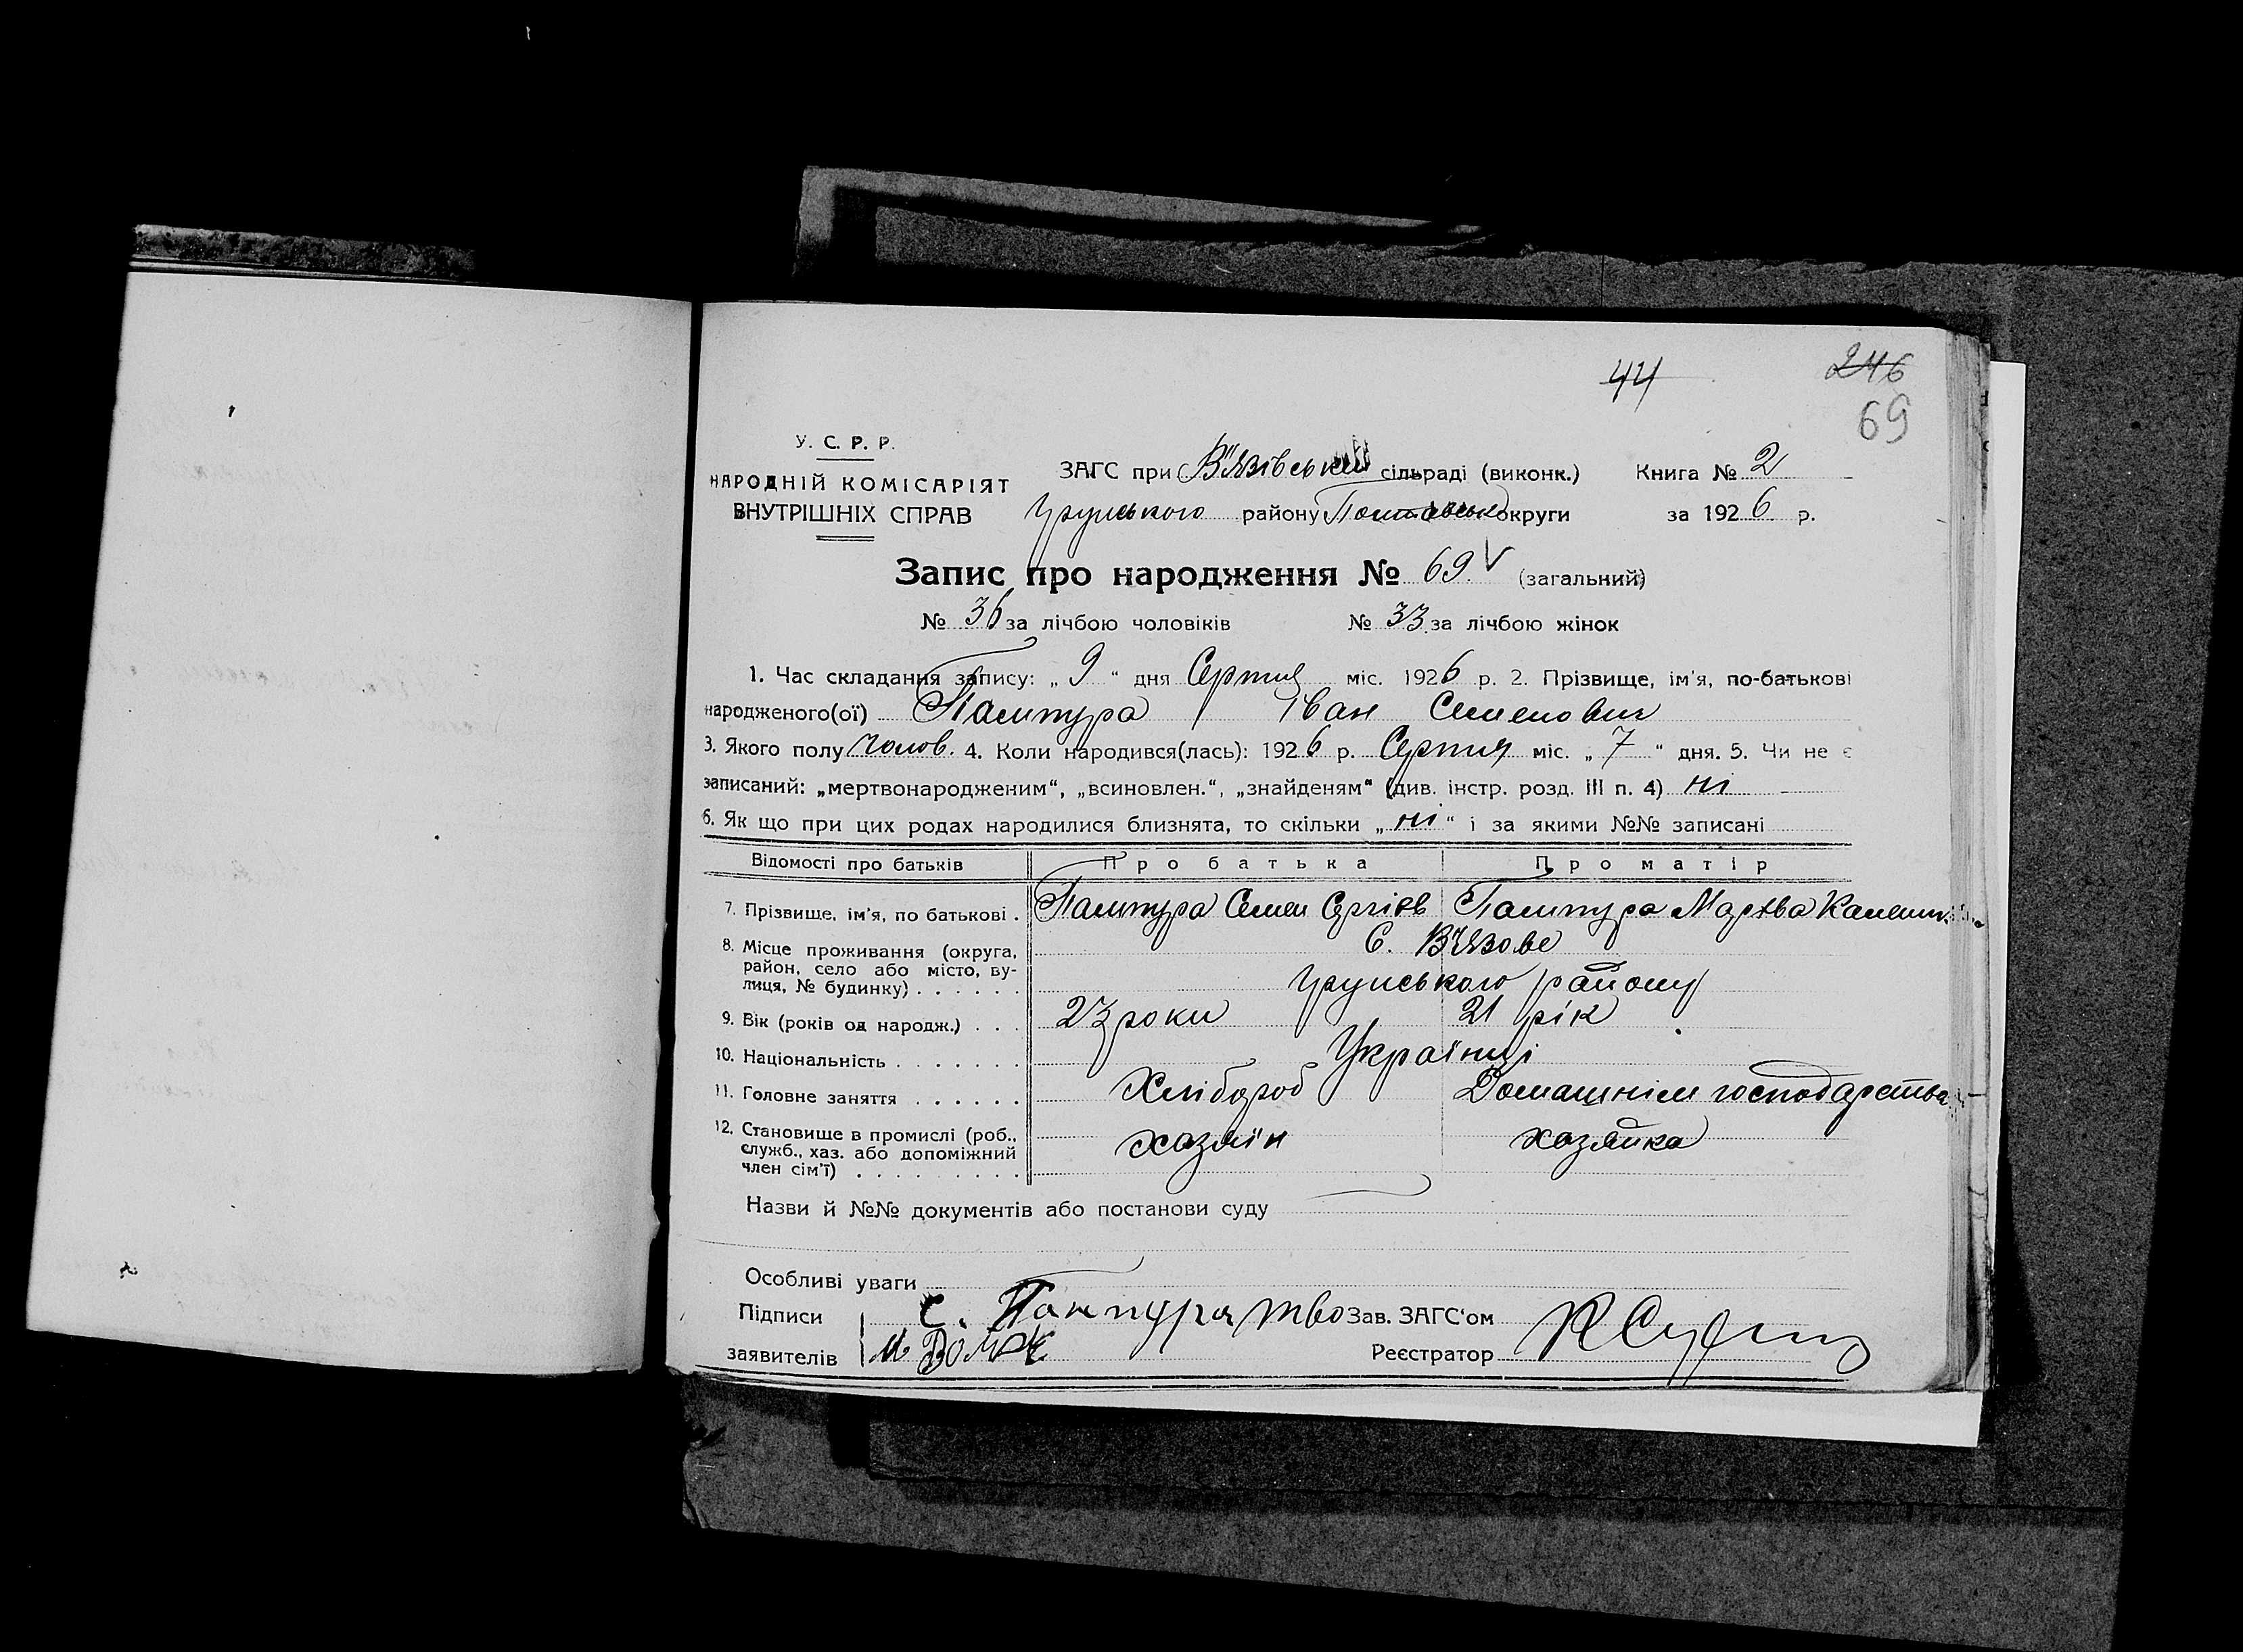 44
246
69
У. С. Р. Р.
НАРОДНІЙ КОМІСАРІЯТ
ВНУТРІШНІХ СПРАВ
ЗАГС при В'язівській сільраді (виконк.) Книга № 2
Грунського району Полтавськ округи за 1926 р.
Запис про народження № 69. (загальний)
№ 36 за лічбою чоловіків № 33 за лічбою жінок
1. Час складання запису: „ 9 “ дня Серпня міс. 1926 р. 2. Прізвище, ім'я, по-батькові
народженого(ої) Іван Семенович
3. Якого полу чолов. 4. Коли народився(лась): 1926 р. Серпня міс. „ 7 “ дня. 5. Чи не є
записаний: „мертвонародженим“, „всиновлен.“, „знайденям“ (див. інстр. розд. III п. 4) ні
6. Як що при цих родах народилися близнята, то скільки „ ні “ і за якими №№ записані
Відомості про батьків Про батька Про матір
7. Прізвище, ім'я, по батькові . Семен Сергієв
8. Місце проживання (округа, район, село або місто, вулиця, № будинку) . . . . . . С. В'язове
Грунського району
9. Вік (років од народж.) . . . 23 роки 21 рік
10. Національність . . . . . . . Українці
11. Головне заняття . . . . . . Хлібороб Домашнім господарства
12. Становище в промислі (роб., служб., хаз. або допоміжний член сім'ї) . . . . . . . . . хазяїн хазяйка
Назви й №№ документів або постанови суду
Особливі уваги
Підписи С. Зав. ЗАГС'ом
заявителів Реєстратор